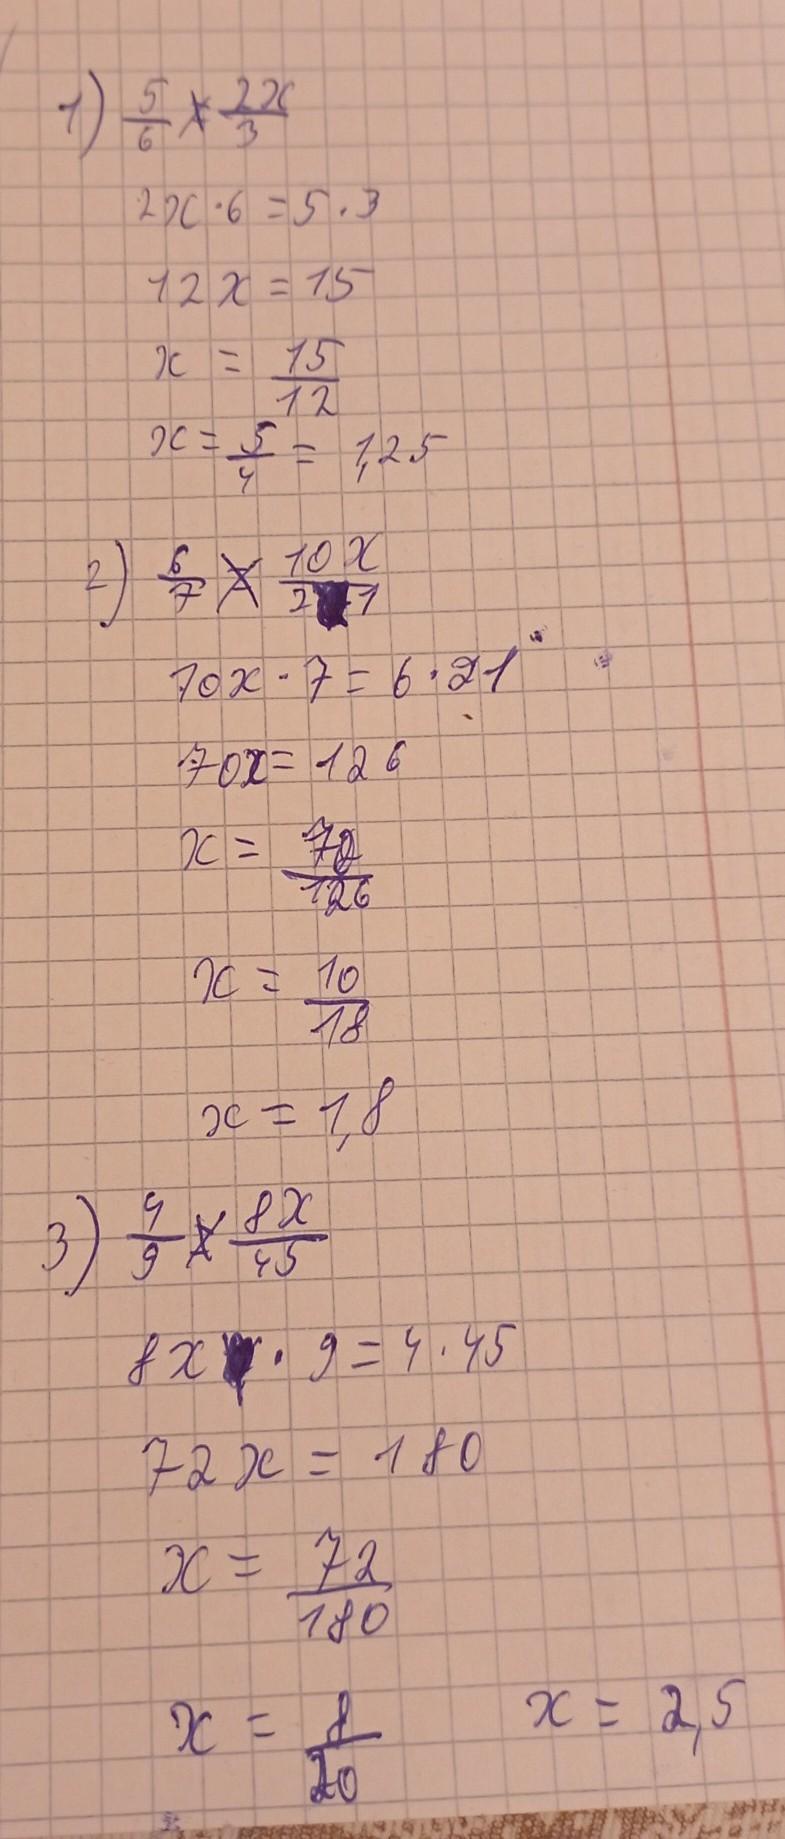 1) 5/6 X 2x/3
2x·6=5·3
12x=15
x = 15/12
x = 5/4 = 1,25
2) 6/7 X 10x/21
10x·7=6·21
70x=126
x = 70/126
x = 10/18
x = 1,8
3) 4/9 X 8x/45
8x·9=4·45
72x = 180
x = 72/180
x = 8/20 x = 2,5